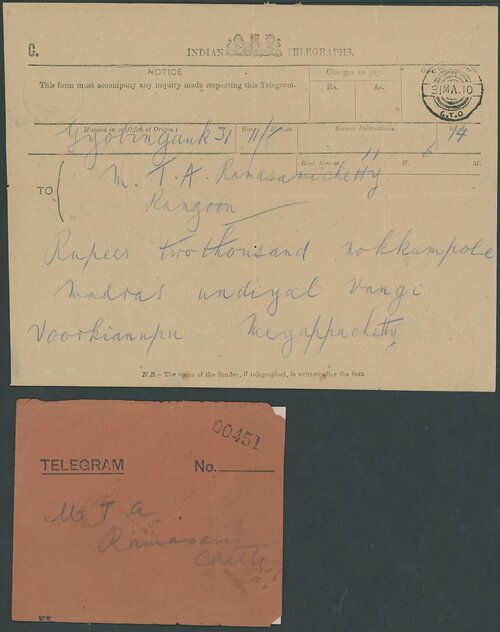 C.
INDIAN TELEGRAPHS.
NOTICE
This form must accompany any inquiry made respecting this Telegram.
Charges to pay.
Rs. As.
31 MA. 10
G.T.O
Handed in at (Office of Origin). Hour Minute. Service Instructions. Words.
Gyobingauk 31 11/ 14
Recd. here at 11 H. M.
TO M. T. A. Ramasamichetty
Rangoon
Rupees twothousand nokkampole
Madras undiyal vangi
Voorkianupu Meyappachetty
N.B.— The name of the Sender, if telegraphed, is written after the text.
00451
TELEGRAM No.
M T A
Ramasami
Chetty